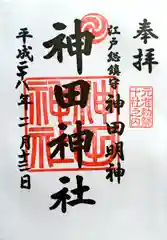 奉拝
元准勅祭
十社之内
江戸総鎮守 神田明神
神田神社
平成二八年二月十三日